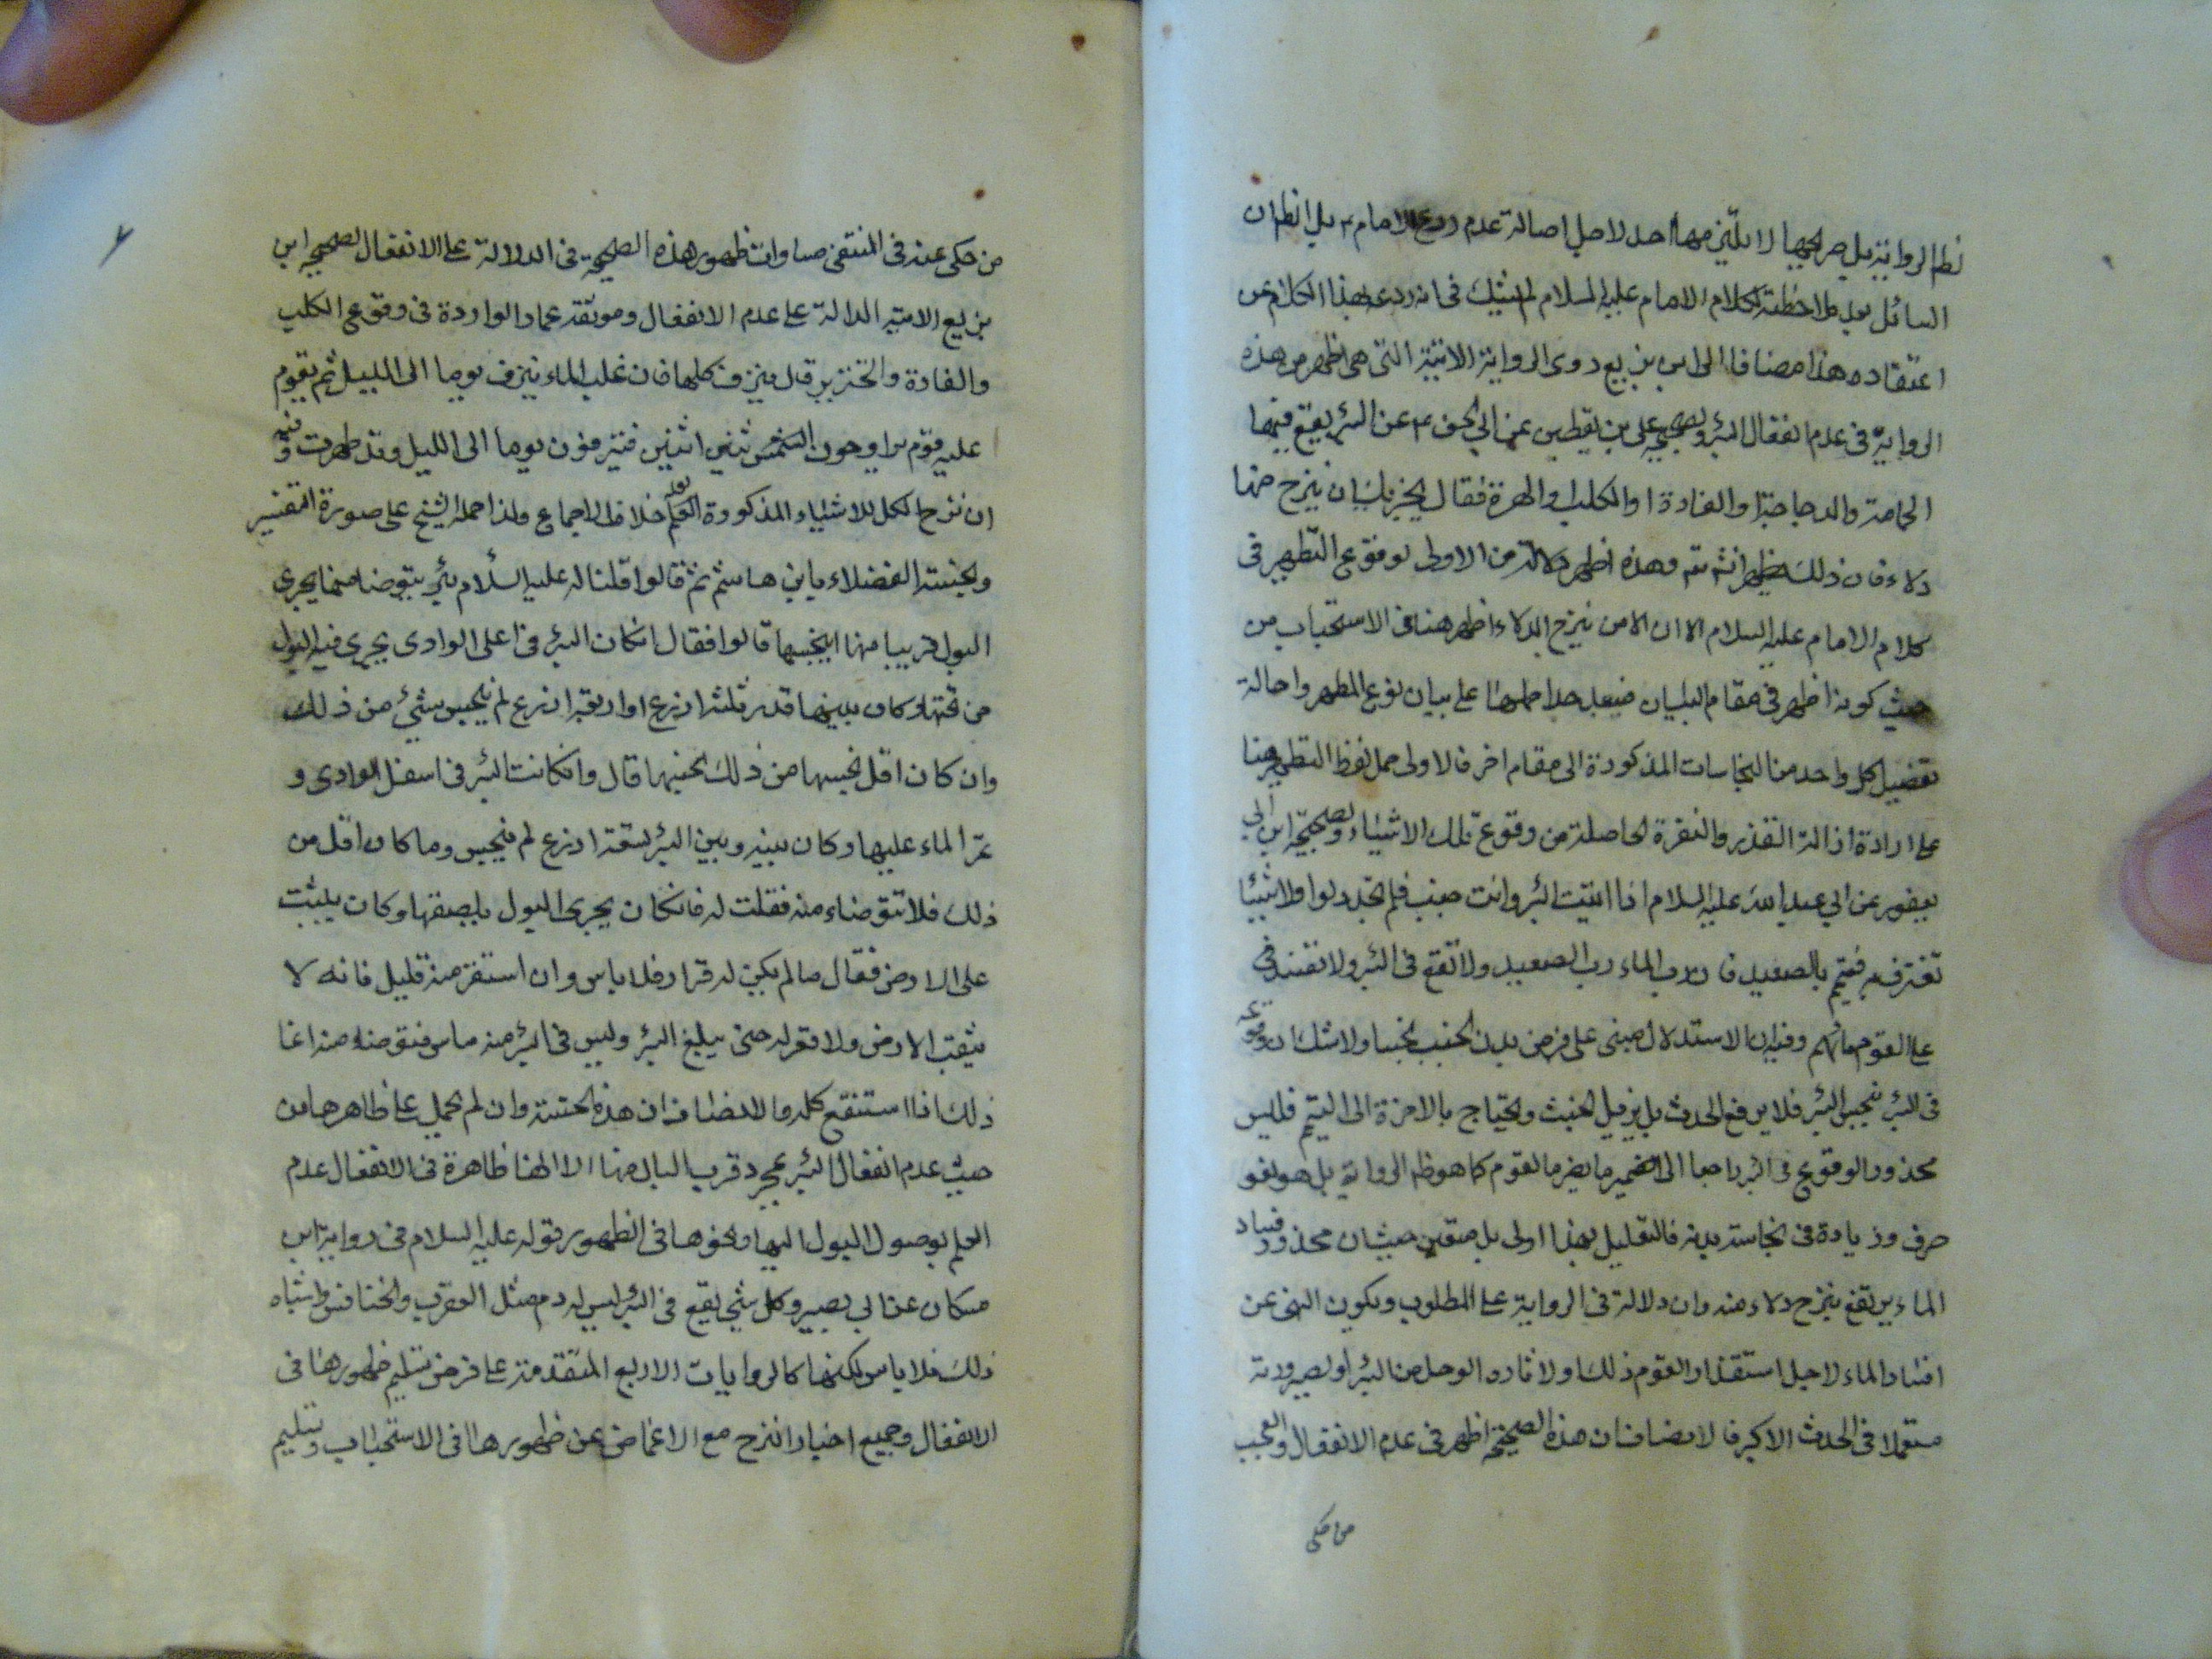 نظم الرواية بل صريحها لا يلتزم بها احد لاصل اصالة عدم ردع الامام ع بل انظم ان
السائل بعد ملاحظة كلام الامام عليه السلام لم يشك في انه ردعه بهذا الكلام عن
اعتقاده هذا مضافا الى ابن بزيع روى الرواية الاتية التى هي اظهر من هذه
الرواية في عدم انفعال البئر وصحيحة على بن يقطين عن ابي الحسن ع عن البئر يقع فيها
الحمامة والدجاجة او الفارة او الكلب او الهرة فقال يجزيك ان ينزح منها
دلاء فان ذلك يطهرها انشاء تع وهذه اظهر دلالة من الاولى لوقوع التطهير في
كلام الامام عليه السلام الا ان الامر بنزح الدلاء اظهر هنا في الاستحباب من
حيث كونه اظهر في مقام البيان فيبعد جدا حملها على بيان نوع المطهر واحالة
تفصيل كل واحد من النجاسات المذكورة الى مقام اخر فالاولى حمل لفظ التطهير هنا
على ارادة ازالة القذر والنفرة الحاصلة من وقوع تلك الاشياء وصحيحة ابن ابي
يعفور عن ابي عبد الله عليه السلام اذا اتيت البئر وانت جنب فلم تجد دلوا ولا شيئا
تغترف به فتيمم بالصعيد فان رب الماء رب الصعيد ولا تقع في البئر ولا تفسد في
على القوم مائهم وفيه ان الاستدلال مبنى على فرض بدن الجنب نجسا ولا شك ان وقوعه
في البئر ينجس البئر فلا يرفع الحدث بل يزيل الخبث ويحتاج بالاخرة الى التيمم فليس
محذور الوقوع في البئر راجعا الى الضمير ما يضر ما القوم كما هو ظم الرواية بل هو لغو
صرف وزيادة في نجاسة بدنه فالتعليل بهذا اولى بل متعين حيث ان محذور فساد
الماء يرتفع بنزح دلاء منه وان دلالة في الرواية على المطلوب ويكون النهى عن
افساد الماء لاجل استقذار القوم ذلك او لاثارة الوحل من البئر او لصيرورته
مستعملا في الحدث الاكبر فالانصاف ان هذه الصحيحة اظهر في عدم الانفعال والعجب
من حكى
من حكى عنه في المنتقى مساوات ظهور هذه الصحيحة في الدلالة على الانفعال لصحيحة ابن
بزيع الاتية الدالة على عدم الانفعال وموثقة عمار الواردة في وقوع الكلب
والفارة والخنزير قال ينزف كلها فان غلب الماء ينزف يوما الى الليل ثم يقوم
عليه قوم يراوحون اثنين اثنين فينزفون يوما الى الليل وقد طهرت وفيه
ان نزح الكل للاشياء المذكورة خلاف الاجماع ولذا حمله الشيخ على صورة التغير
وبحسنة الفضلاء بابن هاشم قالوا قلنا له عليه السلام بئر يتوضا منها يجرى
البول قريبا منها اينجسها قالوا فقال ان كان البئر في اعلى الوادى يجرى فيه البول
من تحتها وكان بينهما قدر ثلثة اذرع او اربعة اذرع لم ينجس شئ من ذلك
وان كان اقل نجسها من ذلك ينجسها قال وان كانت البئر في اسفل الوادى و
يمر الماء عليها وكان بينه وبين البئر تسعة اذرع لم ينجس وما كان اقل من
ذلك فلا تتوضاء منه فقلت له فان كان يجرى البول بلصقها وكان يلبث
على الارض فقال ما لم يكن له قرار فلا باس وان استقر منه قليل فانه لا
يثقب الارض ولا قعر له حتى يبلغ البئر وليس في البئر منه باس فتوضا منه انما
ذلك اذا استنقع كله والانصاف ان هذه الحسنة وان لم يحمل على ظاهرها من
حيث عدم انفعال البئر بمجرد قرب البال منها الا انها ظاهرة في الانفعال عدم
العلم بوصول البول اليها ونحوها في الظهور قوله عليه السلام في رواية ابن
مسكان عن ابي بصير وكل شئ يقع في البئر ليس له دم مثل العقرب والخنافس واشباه
ذلك فلا باس لكنها كالروايات الاربع المتقدمة على فرض تسليم ظهورها في
الانفعال وجميع اخبار النزح مع الاغماض عن ظهورها في الاستحباب وتسليم